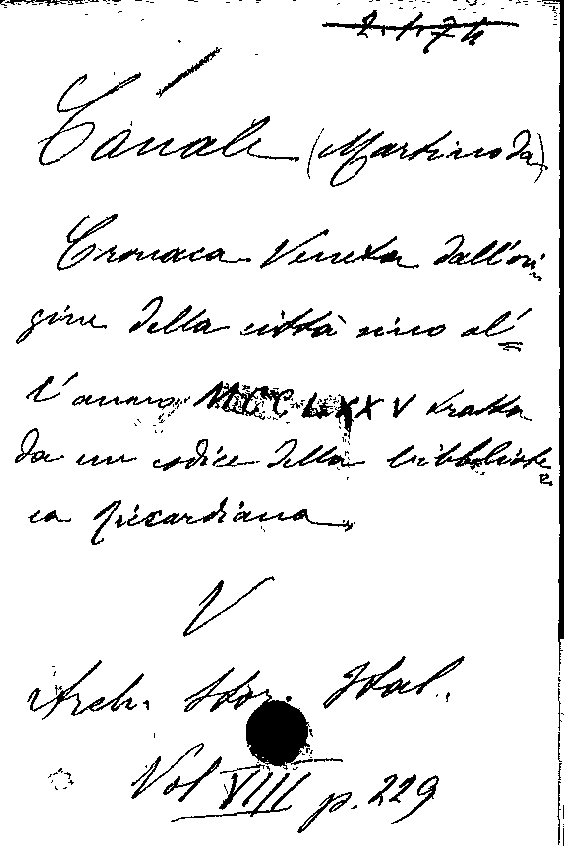 2.1.74
Canale (Martino da)
Cronaca Veneta dall'ori
gine della città sino al=
l'anno MCCLXXV tratta
da un codice della bibliote=
ca Riccardiana,
V
Arch. Stor. Ital.
Vol VIII p. 229